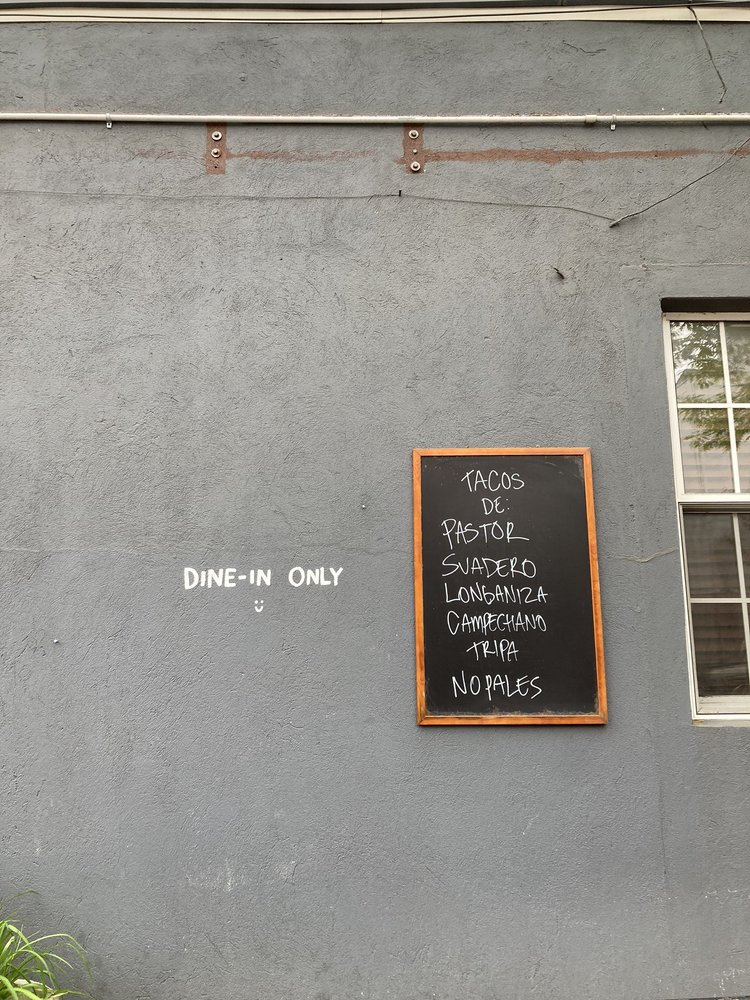 DINE-IN ONLY
TACOS
DE:
PASTOR
SUADERO
LONGANIZA
CAMPECHANO
TRIPA
NOPALES